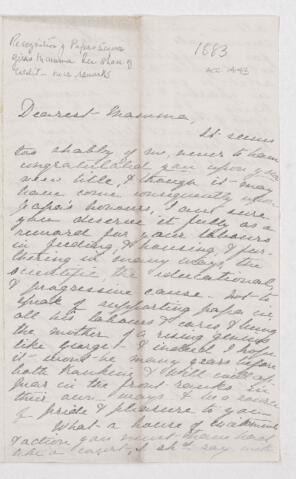 Recognition of Papa's Science
gives Mamma her share of
credit - nice remarks
1883
ACC 14143
Dearest Mamma,
It seems
too shabby of me, never to have
congratulated you upon your
new title, & though it may
have come consequently upon
Papa's honours, I am sure
you deserve it fully as a
reward for your labours
in feeding, & housing, &
in many ways, the
scientific, the educational,
& progressive cause - not to
speak of supporting papa in
all his labours & cares & being
the mother of a rising genius
like George! & indeed I hope
it wont be many years before
both & Will will ap-
pear in the front ranks in
their own ways & be a source
of pride & pleasure to you -
What a house of excitement
& action you must have had
like a court, I shd. say with